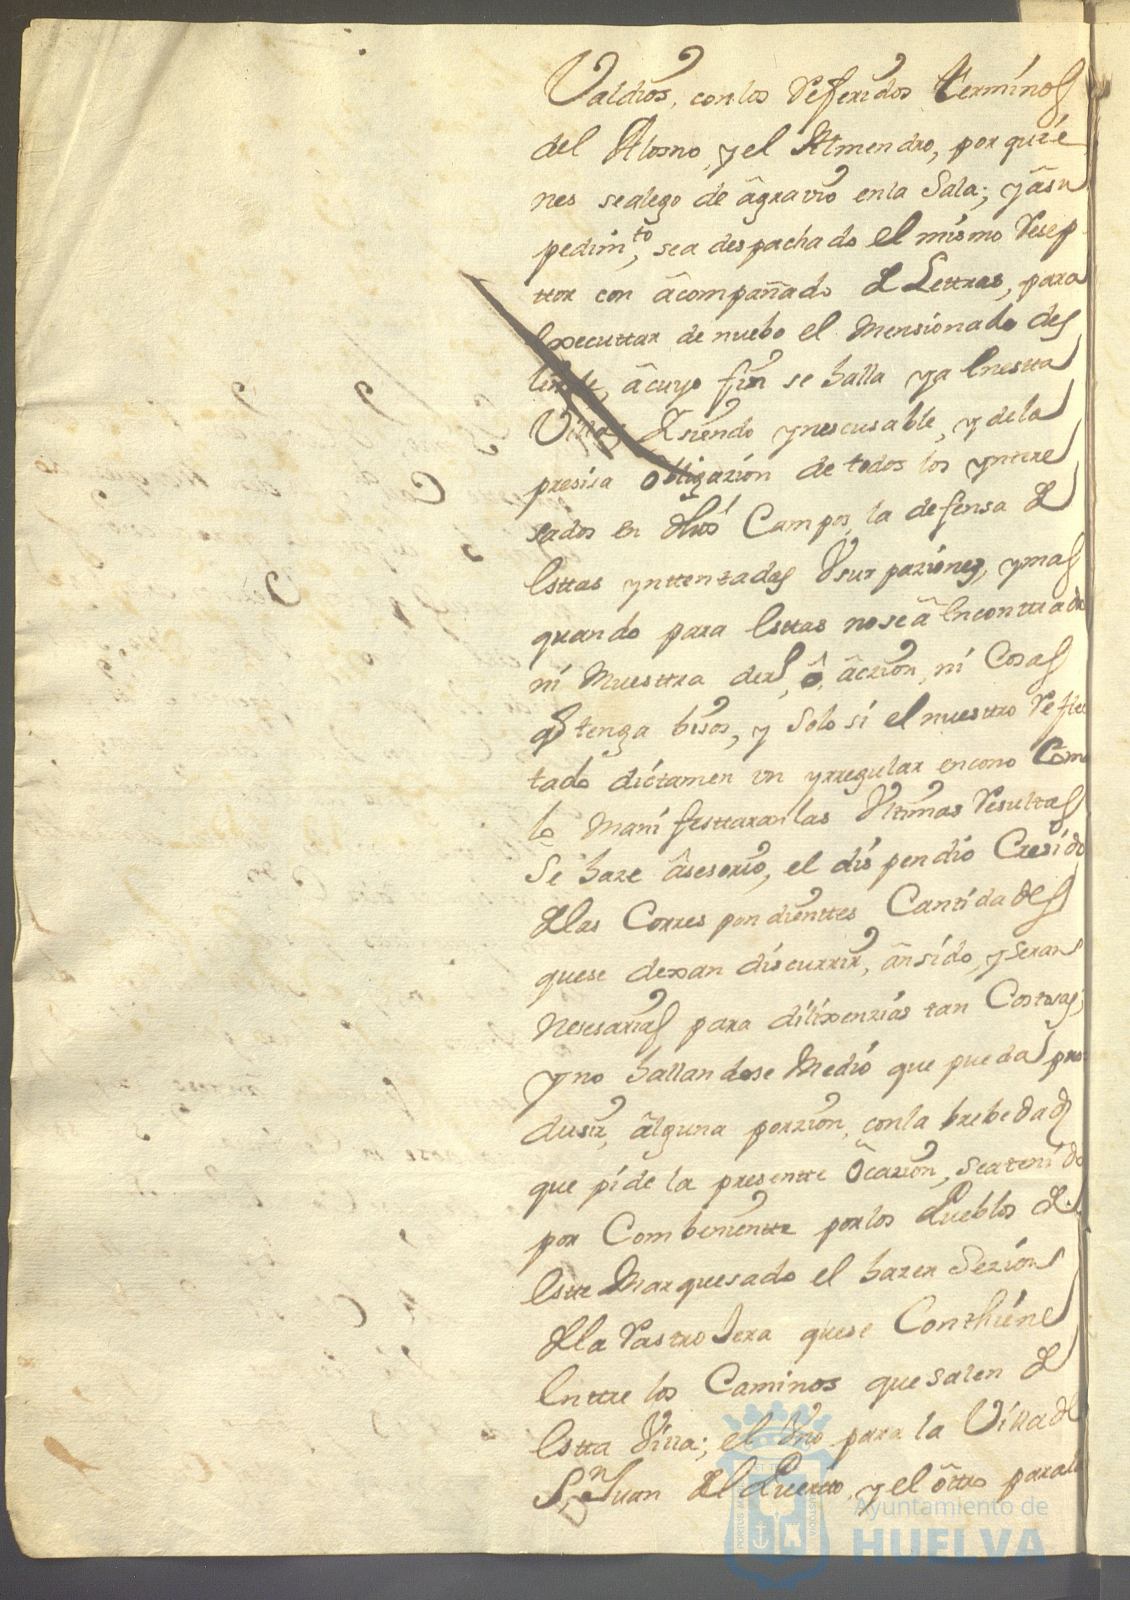 Valdios, con los referidos terminos
del Alosno, y el Almendro, por quié
nes se alego de âgravio en la Sala; y âsu
pedimto, sea despachado el mismo resep
ttor con âcompañado de Lettras, para
Executtar de nuebo el mensionado des
linde, âcuyo fin se halla ya Enestta
Villa, Y siendo ynescusable, y de la
presisa obligazion de todos los yntere
sados en dhos Campos, la defensa de
Esttas ynttentadas Vsurpaziones, y mas
quando para Esttas no se â Encontrado
ni Muesttra de ô âczion, ni Cosas
q tenga bisos, y Solo si el nuesttro
tado dictamen vn yrregular encono Como
lo Manifesttaran las Vltimas resultas
Se haze âsesorio, el dispendio Cresido
de las Correspondienttes Cantidades
que se dexan discurrir, ân sido, y seran
Nesesarias para dilixenzias tan Costosas;
y no hallandose Medio que pueda pro
dusir, âlguna porzion, con la brebedad
que pide la presentte ôcazion, sea tenido
por Combenientte por los Pueblos de
Este Marquesado el hazer Sezion
de la rastrojera que se Conthiene
Enttre los Caminos que salen de
Estta Villa; el Vno para la Villa de
Sn Juan del Puertto, y el ôttro para la
Ayuntamiento de
HUELVA